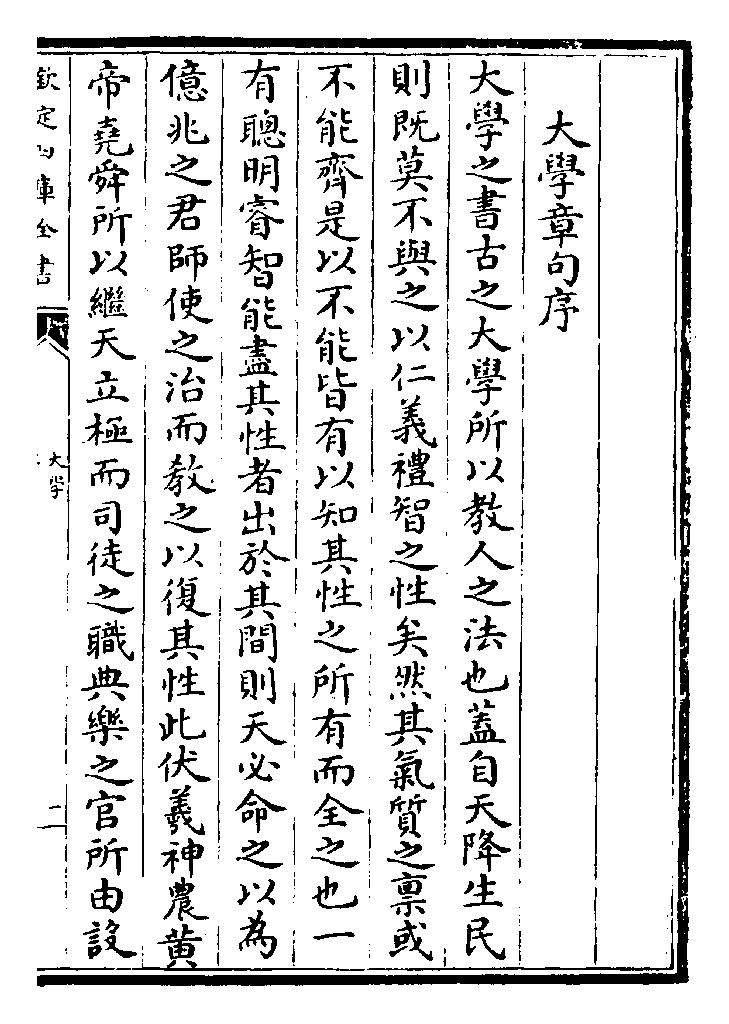 大學章句序
大學之書古之大學所以教人之法也蓋自天降生民
則既莫不與之以仁義禮智之性矣然其氣質之禀或
不能齊是以不能皆有以知其性之所有而全之也一
有聰明睿智能盡其性者出於其間則天必命之以為
億兆之君師使之治而教之以復其性此伏羲神農黄
帝堯舜所以繼天立極而司徒之職典樂之官所由設
欽定四庫全書
大學
二